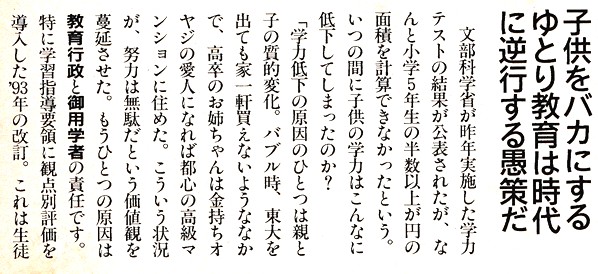 子供をバカにする
ゆとり教育は時代
に逆行する愚策だ
文部科学省が昨年実施した学力
テストの結果が公表されたが、な
んと小学5年生の半数以上が円の
面積を計算できなかったという。
いつの間に子供の学力はこんなに
低下してしまったのか?
「学力低下の原因のひとつは親と
子の質的変化。バブル時、東大を
出ても家一軒買えないようななか
で、高卒のお姉ちゃんは金持ちオ
ヤジの愛人になれば都心の高級マ
ンションに住めた。こういう状況
が、努力は無駄だという価値観を
蔓延させた。もうひとつの原因は
教育行政と御用学者の責任です。
特に学習指導要領に観点別評価を
導入した'93年の改訂。これは生徒